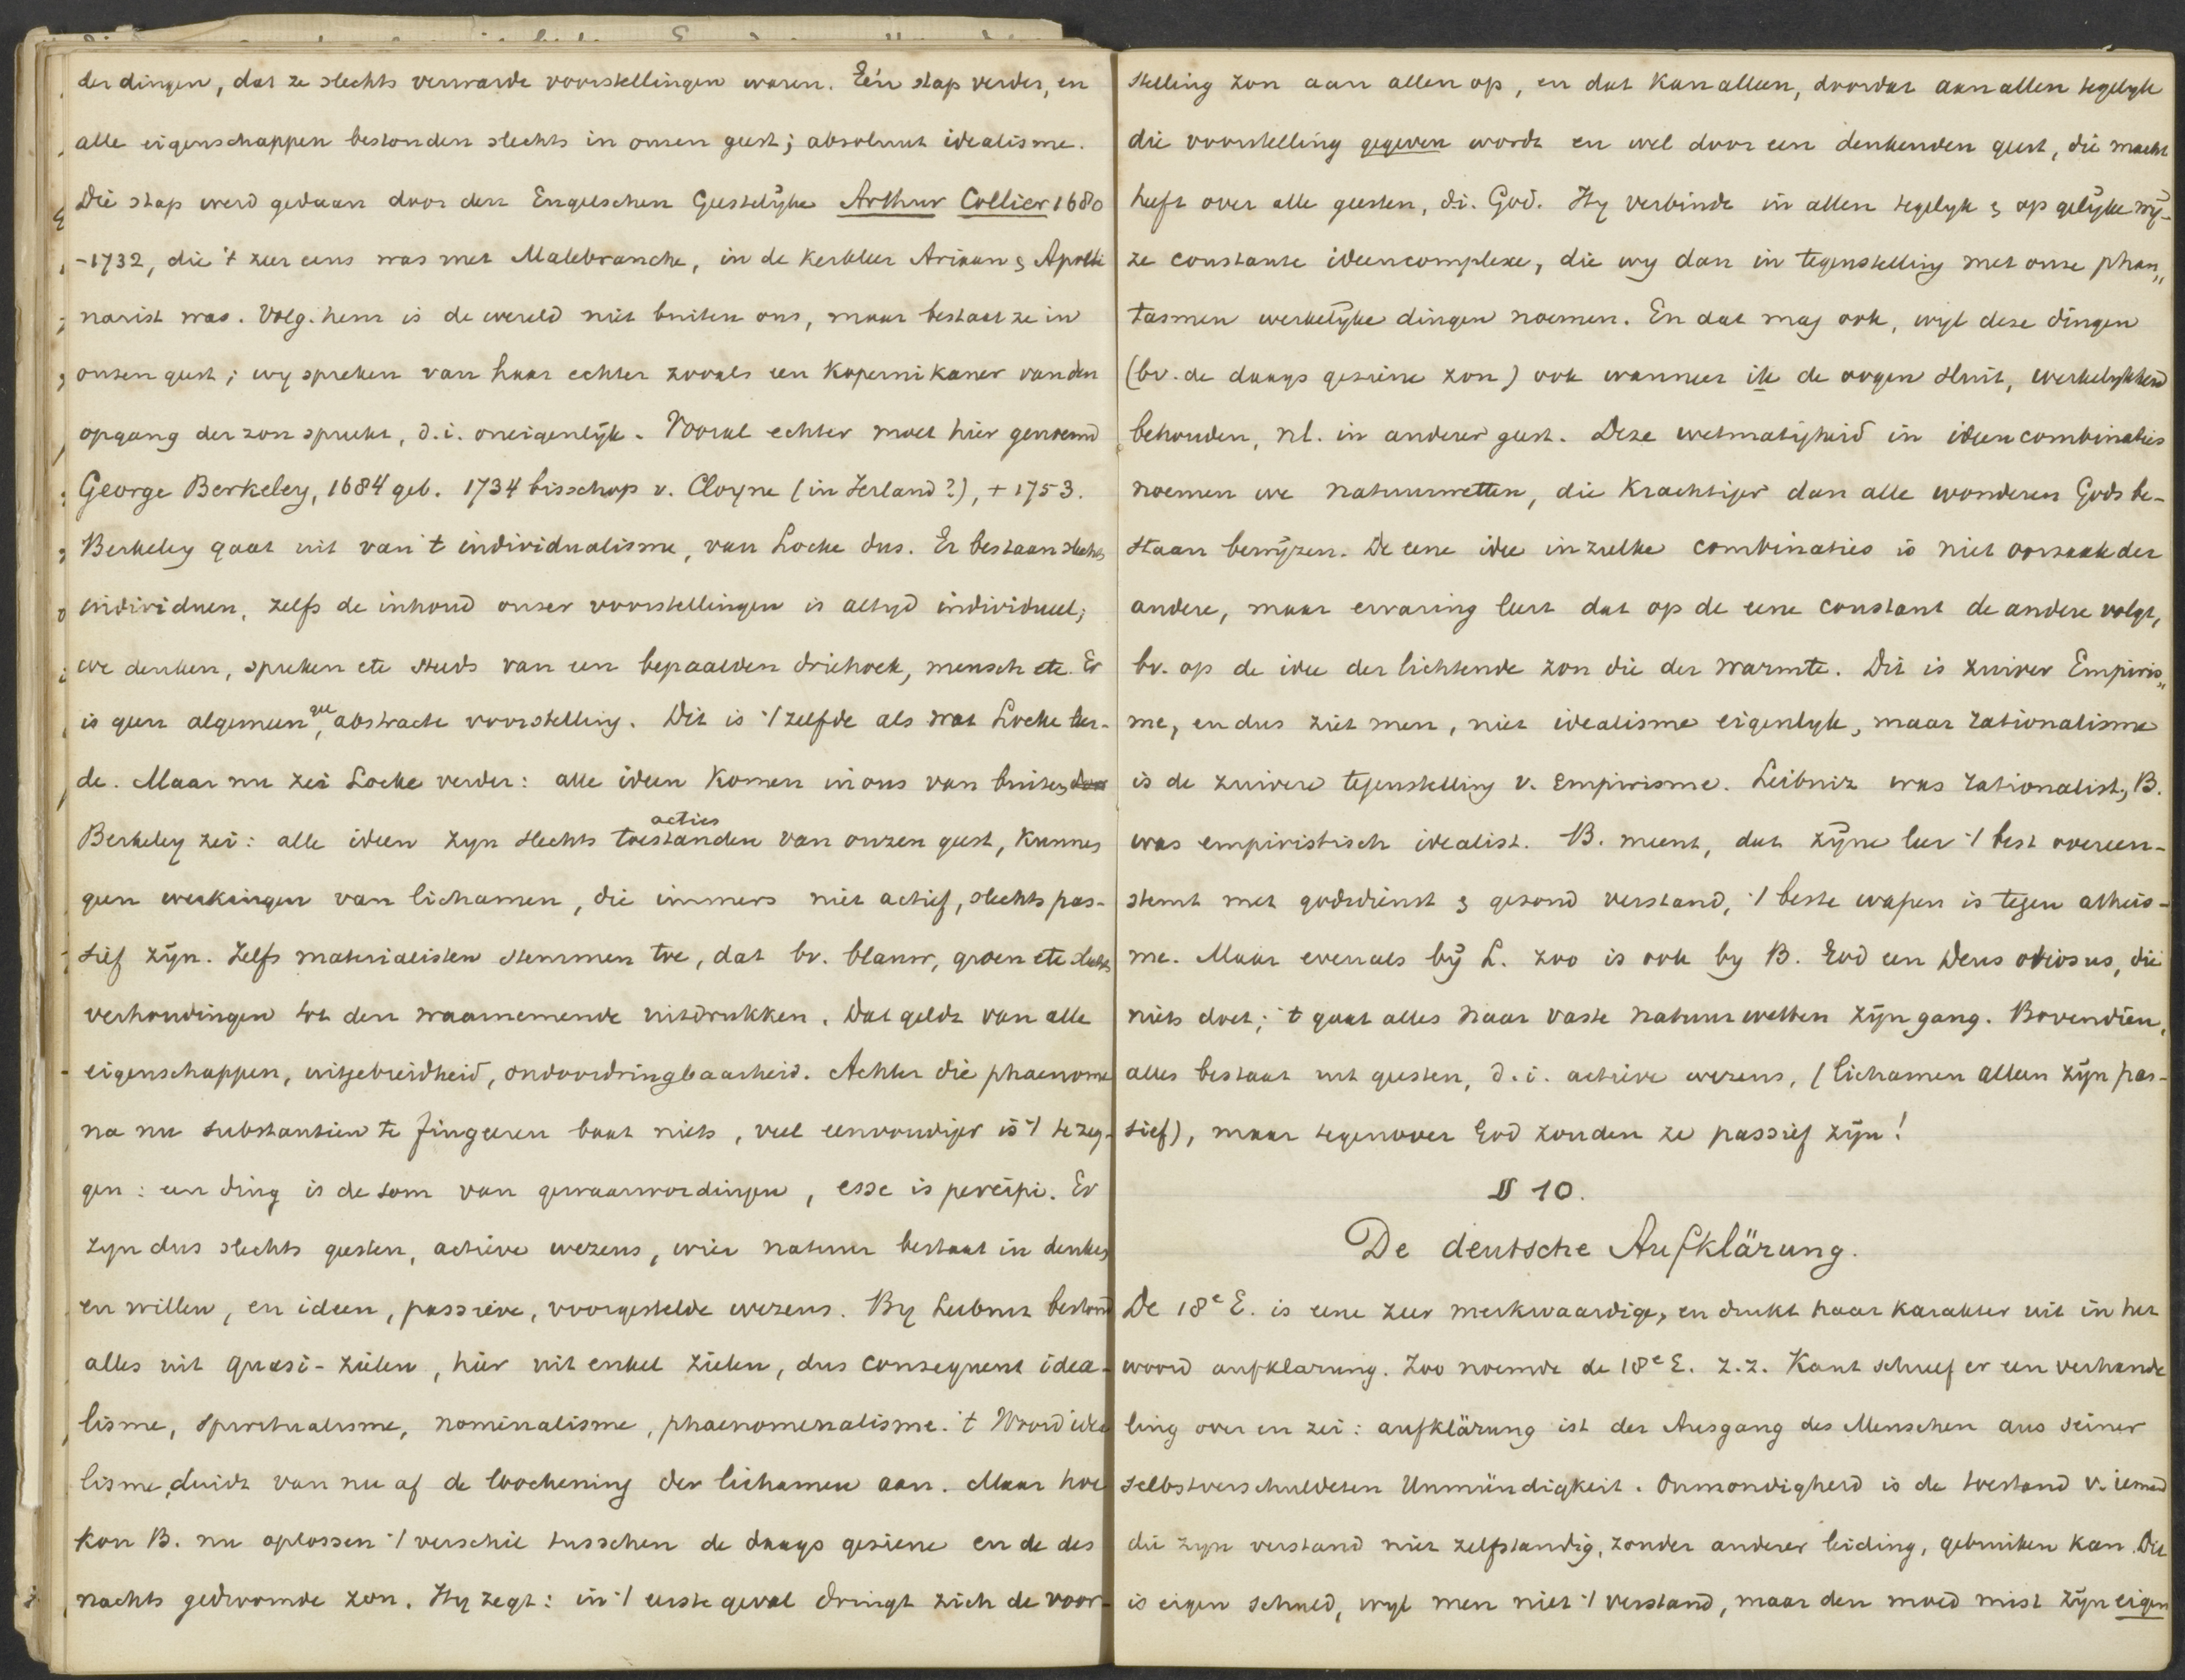 der dingen, dat ze slechts verwarde voorstellingen waren. Eén stap verder, en
alle eigenschappen bestonden slechts in onzen geest; absoluut idealisme.
Die stap werd gedaan door den Engelschen Geestelijke Arthur Collier 1680
-1732, die 't zeer eens was met Malebranche, in de kerkleer Ariaan & Apolli
narist was. Volg. hem is de wereld niet buiten ons, maar bestaat ze in
onzen geest; wy spreken van haar echter zooals een Kopernikaner van den
opgang der zon spreekt, d.i. oneigenlijk. Vooral echter moet hier genoemd
George Berkeley, 1684 geb. 1734 bisschop v. Cloyne (in Ierland?), + 1753.
Berkeley gaat uit van 't individualisme, van Locke dus. Er bestaan slechts
individuen, zelfs de inhoud onzer voorstellingen is altyd individueel;
we denken, spreken etc steeds van een bepaalden driehoek, mensch etc. Er
is geen algemeene, abstracte voorstelling. Dit is 't zelfde als wat Locke leer-
de. Maar nu zei Locke verder: alle ideen komen in ons van buiten,
Berkeley zei: alle ideen zyn slechts toestanden acties van onzen geest, kunnen
geen werkingen van lichamen, die immers niet actief, slechts pas-
sief zijn. Zelfs materialisten stemmen toe, dat bv. blauw, groen etc slechts
verhoudingen tot den waarnemende uitdrukken. Dat geldt van alle
eigenschappen, uitgebreidheid, ondoordringbaarheid. Achter die phaenome
na nu substantien te fingeeren baat niets, veel eenvoudiger is 't te zeg-
gen: een ding is de som van gewaarwordingen, esse is percipi. Er
zyn dus slechts geesten, actieve wezens, wier natuur bestaat in denken
en willen, en ideen, passieve, voorgestelde wezens. By Leibniz bestond
alles uit quasi-zielen, hier uit enkel zielen, dus consequent idea-
lisme, spiritualisme, nominalisme, phaenomenalisme. 't Woord idea
lisme, duidt van nu af de loochening der lichamen aan. Maar hoe
kon B. nu oplossen 't verschil tusschen de daags geziene en de des
nachts gedroomde zon. Hy zegt: in 't eerste geval dringt zich de voor-
stelling zon aan allen op, en dat kan alleen, doordat aan allen tegelyk
die voorstelling gegeven wordt en wel door een denkenden geest, die macht
heeft over alle geesten, di. God. Hy verbindt in allen tegelyk & op gelijke wij-
ze constante ideencomplexe, die wy dan in tegenstelling met onze phan„
tasmen werkelijke dingen noemen. En dat mag ook, wyl deze dingen
(bv. de daags geziene zon) ook wanneer ik de oogen sluit, werkelykheid
behouden, nl. in anderer geest. Deze wetmatigheid in ideencombinaties
noemen we natuurwetten, die krachtiger dan alle wonderen Gods be-
staan bewijzen. De eene idee in zulke combinaties is niet oorzaak der
andere, maar ervaring leert dat op de eene constant de andere volgt,
bv. op de idee der lichtende zon die der warmte. Dit is zuiver Empiris„
me, en dus ziet men, niet idealisme eigenlyk, maar rationalisme
is de zuivere tegenstelling v. empirisme. Leibniz was rationalist, B.
was empiristisch idealist. B. meent, dat zijne leer 't best overeen-
stemt met godsdienst & gezond verstand, 't beste wapen is tegen atheis-
me. Maar evenals bij L. zoo is ook by B. God een Deus otiosus, die
niets doet; 't gaat alles naar vaste natuurwetten zijn gang. Bovendien,
alles bestaat uit geesten, d.i. actieve wezens, (lichamen alleen zijn pas-
sief), maar tegenover God zouden ze passief zijn!
§ 10.
De deutsche Aufklärung.
De 18e E. is eene zeer merkwaardige, en drukt haar karakter uit in het
woord aufklarung. Zoo noemde de 18e E. z.z. Kant schreef er een verhande
ling over en zei: aufklärung ist der Ausgang des Menschen aus seiner
selbstverschuldeten Unmündigkeit. Onmondigheid is de toestand v. iemand
die zyn verstand niet zelfstandig, zonder anderer leiding, gebruiken kan. Dit
is eigen schuld, wyl men niet 't verstand, maar den moed mist zijn eigen